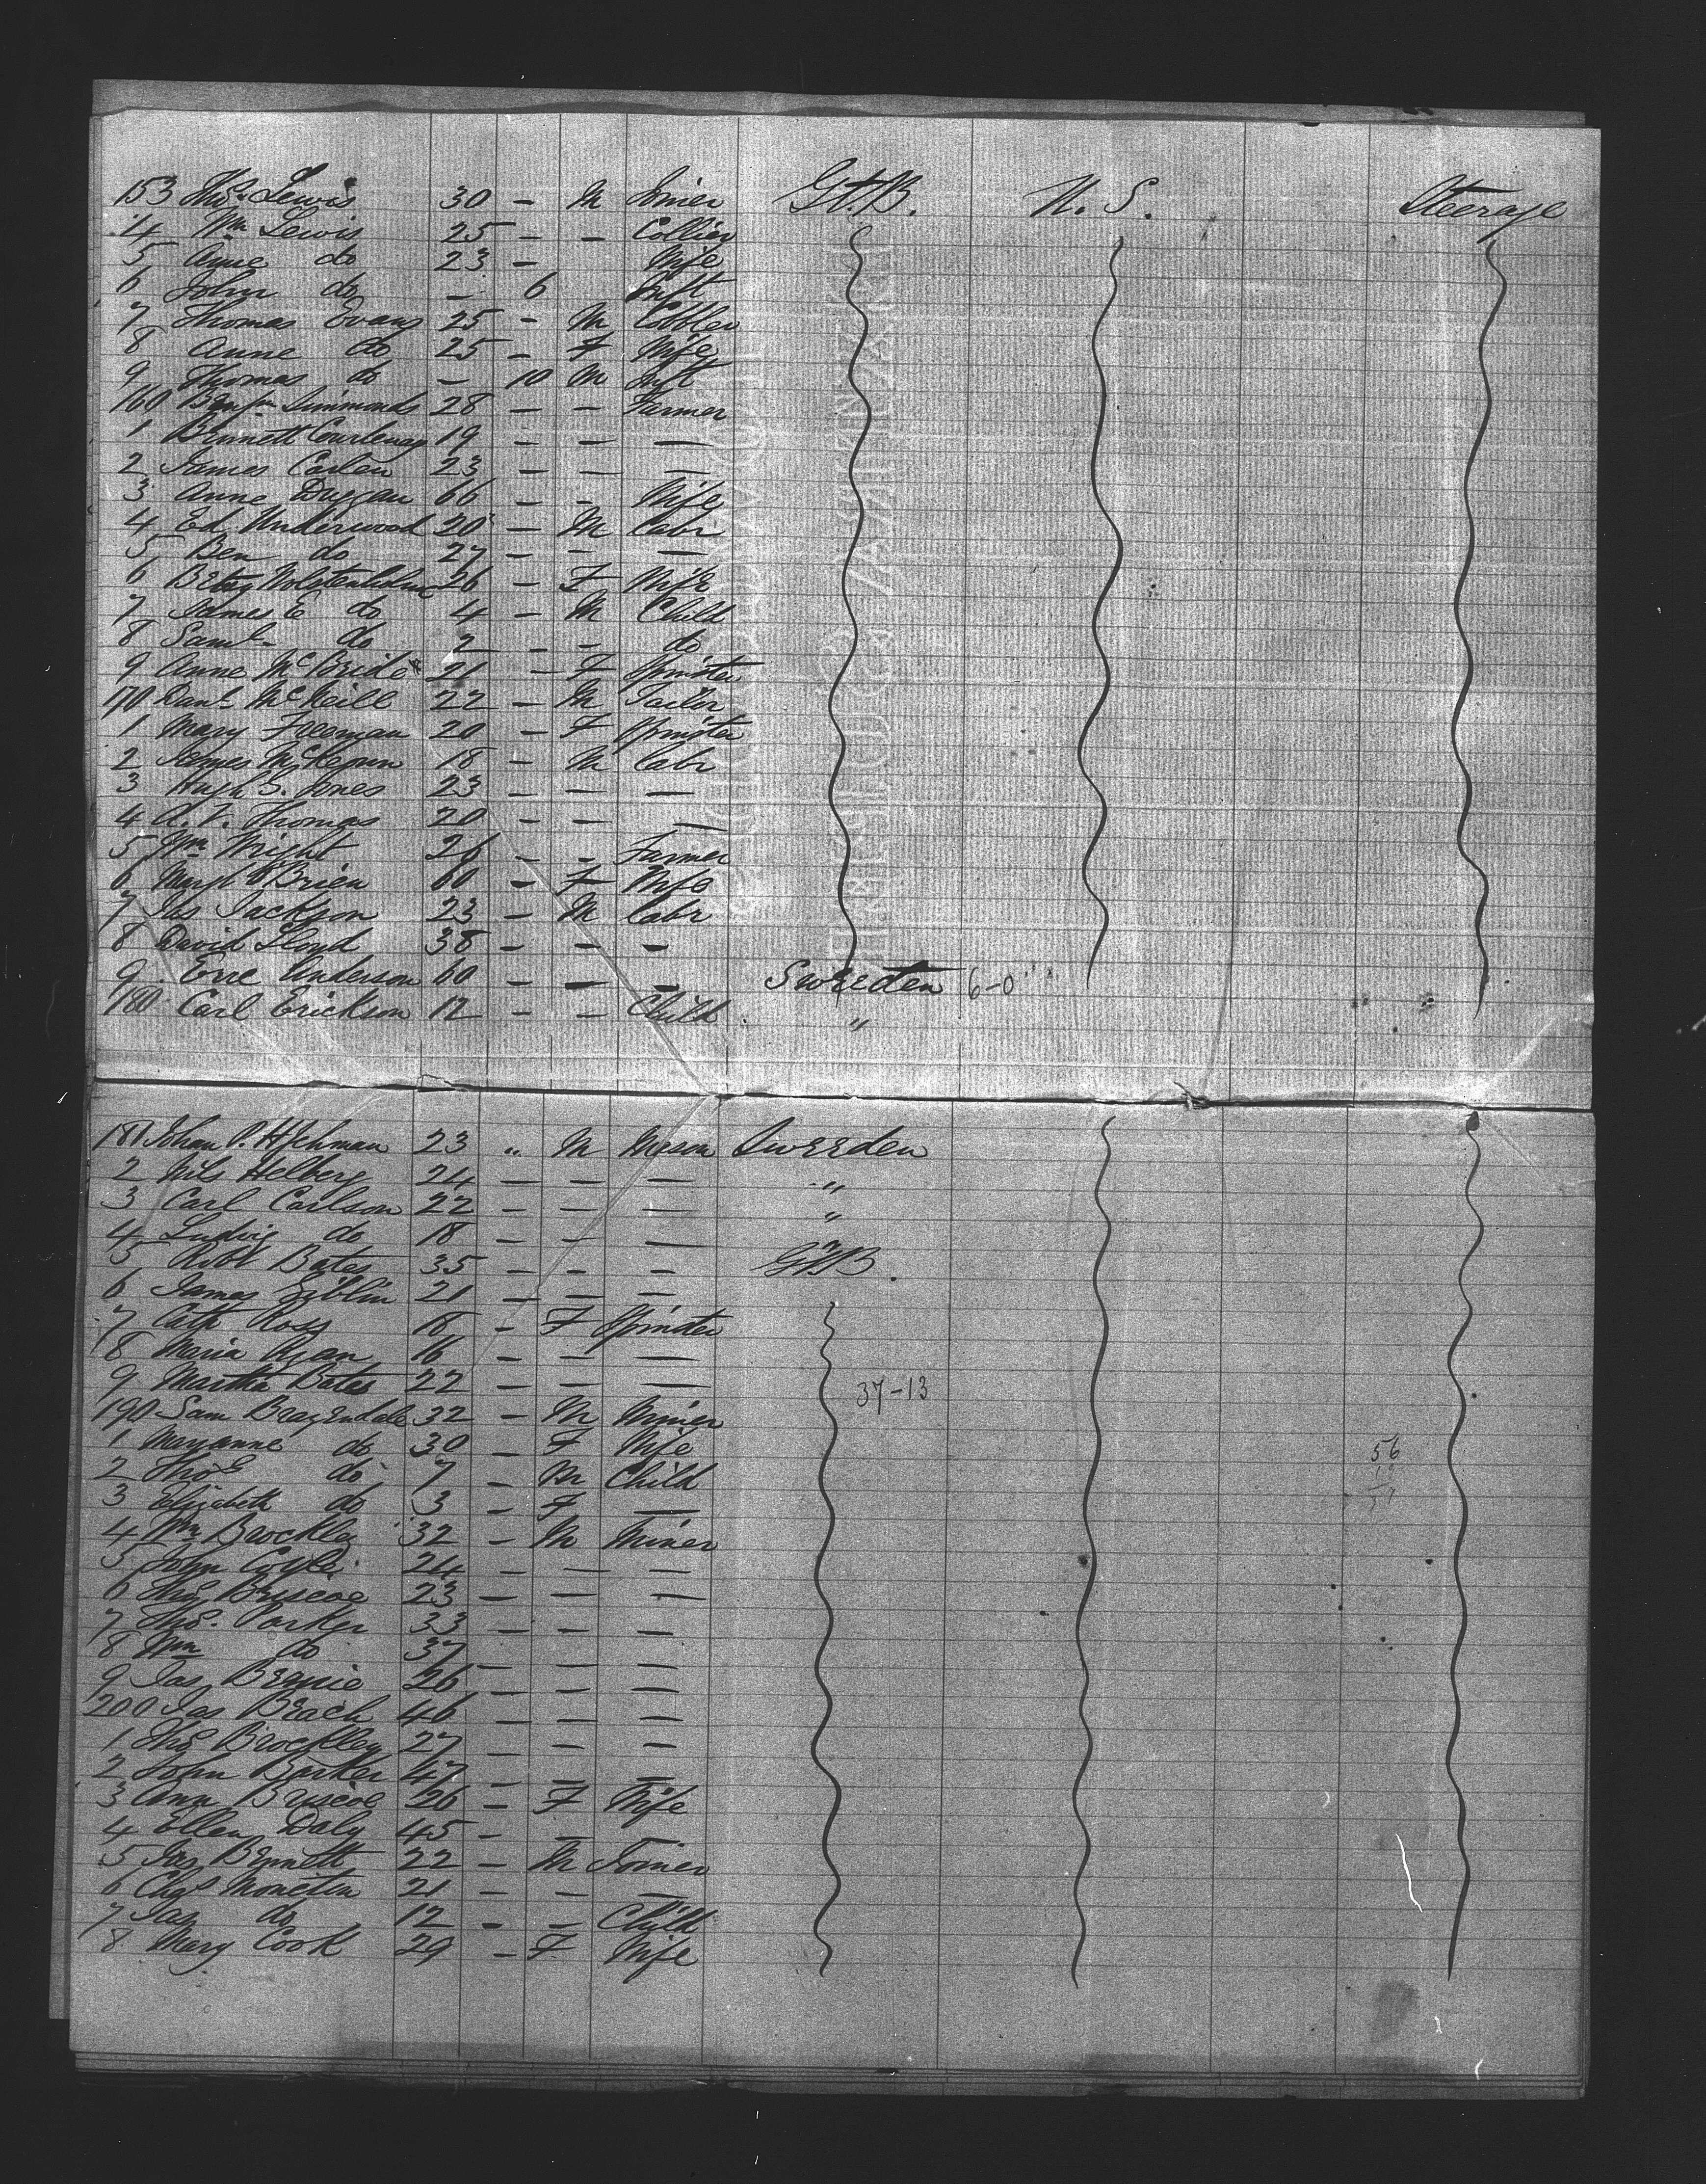 153 Thos Lewis 30 - M Joiner Gt. B. U. S. Steerage
4 Wm Lewis 25 - - Collier
5 Anne do 23 - Wife
6 John do - 6 Inft
7 Thomas Evans 25 - M Cobbler
8 Anne do 25 - F Wife
9 Thomas do - 10 M Inft
160 Benjn Simmonds 28 - - Farmer
1 Bennett Courtenay 19 - - -
2 James Carlen 23 - - -
3 Anne Duggan 66 - - Wife
4 Ed Underwood 20 - M Labr
5 Ben do 27 - - -
6 Betsy Wolstenholme 26 - F Wife
7 James E do 4 - M Child
8 Saml do 2 - - do
9 Anne McBride 21 - F Spinster
170 Danl McNeill 22 - M Tailor
1 Mary Freeman 20 - F Spinster
2 James 18 - M Labr
3 Hugh S. Jones 23 - - -
4 A. V. Thomas 20 - - -
5 Wm Wright 26 - - Farmer
6 Margt O'Brien 60 - F Wife
7 Jas Jackson 23 - M Labr
8 David Lloyd 38 - - -
9 Eric Anderson 60 - - - Sweeden 6-0
180 Carl Erickson 12 - - Child "
181 Johan P. 23 " M Mason Sweeden
2 Nils Helberg 24 - - - "
3 Carl Carlson 22 - - - "
4 Ludvig do 18 - - - "
5 Robt Bates 35 - - - Gt B.
6 James Giblin 21 - - -
7 Cath Ross 18 - F Spinster
8 Maria Ryan 16 - - -
9 Martha Bates 22 - - - 37-13
190 Sam Brazendale 32 - M Miner
1 Maryanne do 30 - F Wife 56
2 Thos do 7 - M Child
3 Elizabeth do 3 - F -
4 Wm Brockley 32 - M Miner
5 John Coyle 24 - - -
6 Thos Briscoe 23 - - -
7 Thos. Parker 33 - - -
8 Wm do 37 - - -
9 Jas 26 - - -
200 Jas Beach 46 - - -
1 Thos Brockley 27 - - -
2 John Barker 47 - - -
3 Ann Briscoe 26 - F Wife
4 Ellen Daly 45 - - -
5 Jas Bennett 22 - M Joiner
6 Chas 21 - - -
7 Jas do 12 - - Child
8 Mary Cook 29 - F Wife